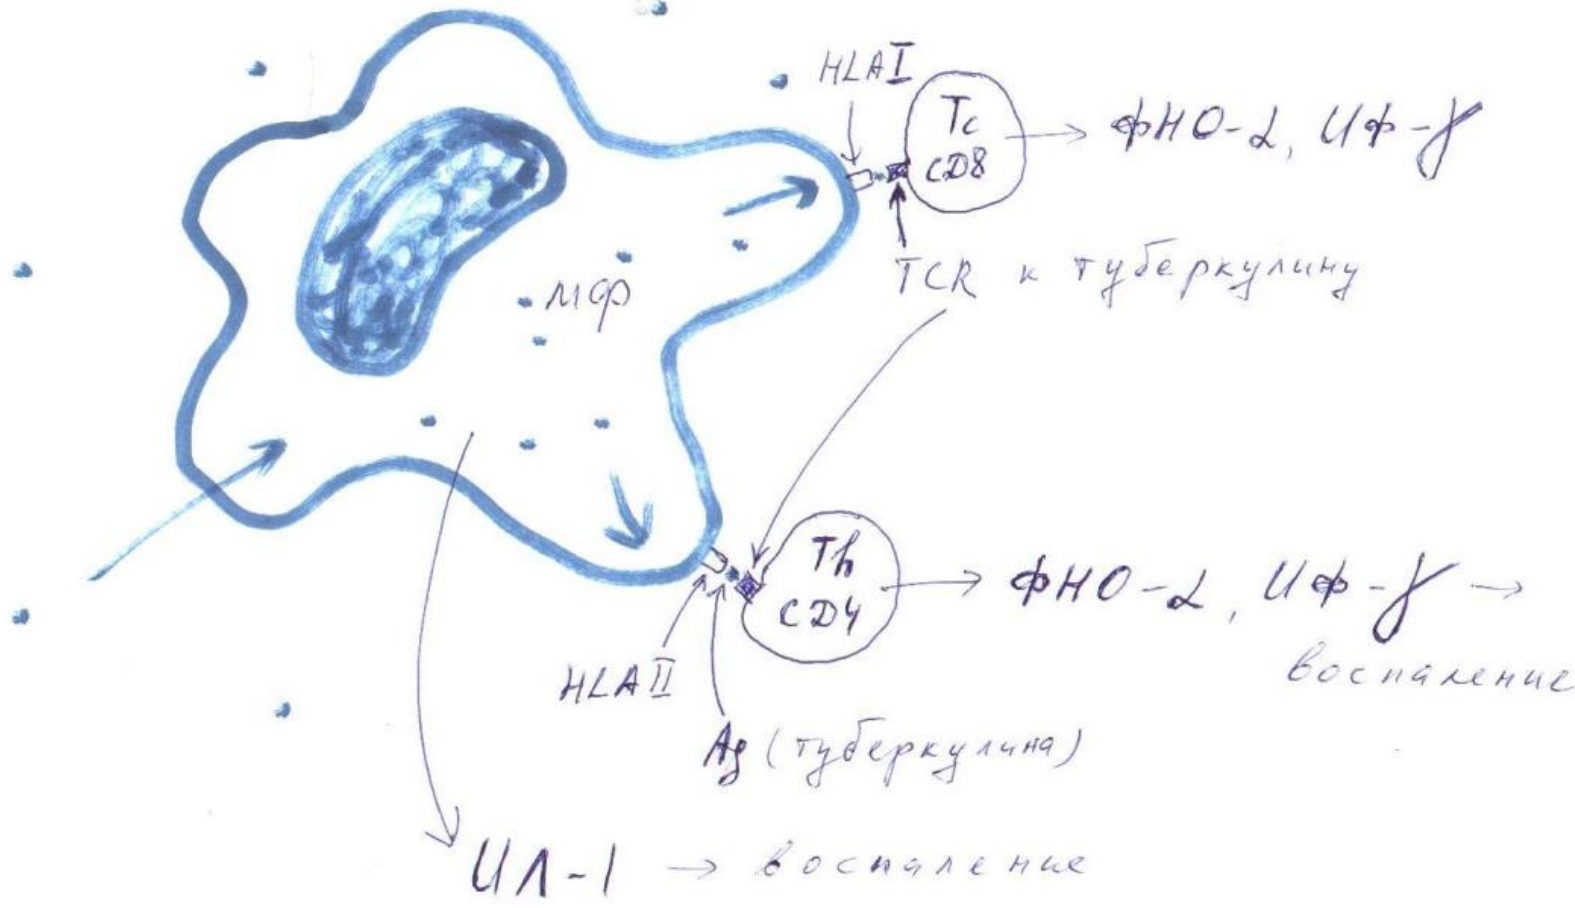 HLA I
Tc
CD8
ФНО-α, ИФ-γ
TCR к туберкулину
МФ
Th
CD4
ФНО-α, ИФ-γ →
воспаление
HLA II
Ag (туберкулина)
ИЛ-1 → воспаление